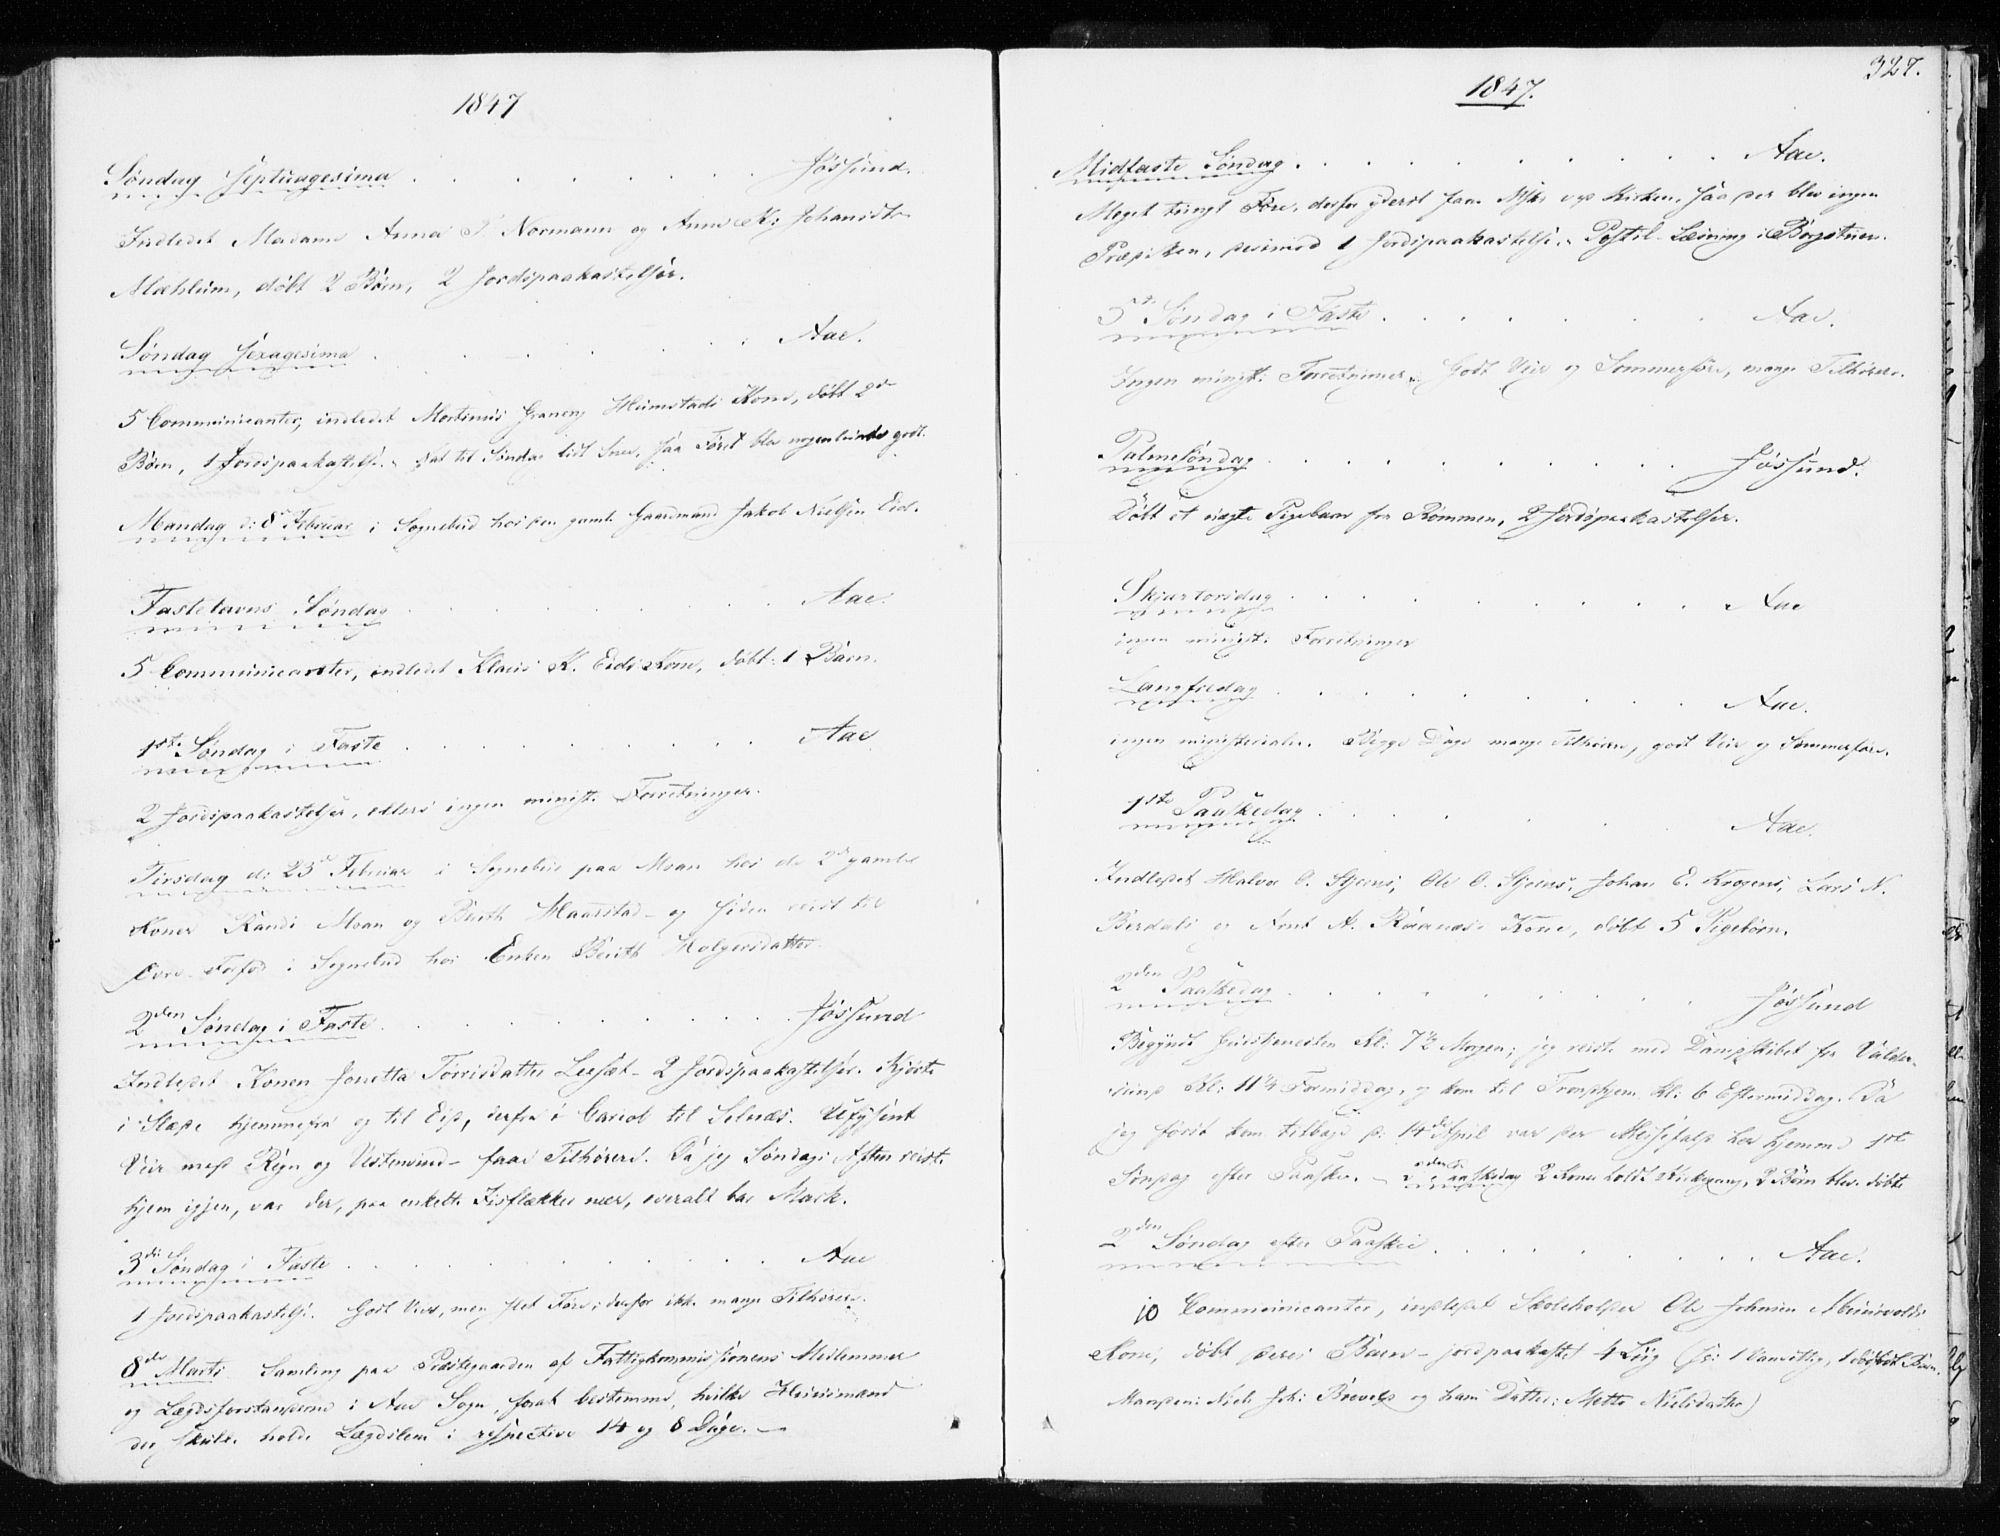 1847
Søndag Septuagesima . . . . . . . Jøssund.
Indledet Madame Anna P Normann og Anne K: Johansdtr
Mæhlum, døbt 2 Børn, 2 Jordspaakastelser.
Søndag Sexagesima . . . . . . . Aae.
5 Communicanter, indledet Mortinus Hiimstads Kone, døbt 2de
Børn, 1 Jordspaakastelse. til Søndag lidt Snee, saa Føret blev nogenlunde godt.
Mandag d: 8de Februar i Sognebud hos den gamle Gaardmand Jakob Nielsen Eid.
Fastelavns Søndag . . . . . . . Aae.
5 Communicanter, indledet Klaus K. Eids Kone, døbt 1 Barn.
1ste Søndag i Faste . . . . . . . Aae
2 Jordspaakastelser, ellers ingen minist: Forretninger.
Tirsdag d: 23de Februar i Sognebud paa Moan hos de 2de gamle
Koner Randi Moan og Berith Haarstad og siden reist til
Øvre i Sognebud hos Enken Berith Holgersdatter.
2den Søndag i Faste . . . . . . . Jøssund
Indledet Konen Jonetta Torrisdatter 2 Jordspaakastelser. Kjørte
i Slæde hjemmefra og til Eid, derfra i Cariol til Selnæs. Ufyselt
Veir med Regn og Vestenvind - faae Tilhørere. Da jeg Søndags Aften reiste
hjem igjen, var der, paa enkelte Iisflækker nær, overalt bar Mark.
3die Søndag i Faste . . . . . . . Aae
1 Jordspaakastelse. Godt Veir, men slet Føre; derfor ikke mange Tilhørere.
8de Marts Samling paa Præstegaarden af Fattigkommissionens Medlemmer
og Lægdsforstanderne i Aae Sogn, forat bestemme, hvilke Huusmænd
der skulle holde Lægdslem i respective 14 og 8 Dage. -
327.
1847.
Midfaste Søndag . . . . . . . Aae.
Meget tungt Føre, derfor yderst faae Msker ved Kirken, saa der blev ingen
Prædiken, derimod 1 Jordspaakastelse. Postil-Læsning i Borgstuen.
5te Søndag i Faste . . . . . . . Aae.
Ingen minist: Forretninger. Godt Veir og Sommerføre, mange Tilhørere.
Palmesøndag . . . . . . . Jøssund.
Døbt et uægte Pigebarn fra Rømmen, 2 Jordspaakastelser.
Skjærtorsdag . . . . . . . Aae
ingen minist: Forretninger
Langfredag . . . . . . . Aae.
ingen ministerialer. Begge Dage mange Tilhørere, godt Veir og Sommerføre.
1ste Paaskedag . . . . . . . Aae.
Indledet Halvor O. Stjerns, Ole O. Stjerns, Johan E. Krogens, Lars N.
Berdals og Arnt A. Raanæs Kone, døbt 5 Pigebørn.
2den Paaskedag . . . . . . . Jøssund
Begyndt Gudstjenesten Kl: 7½ Morgen; jeg reiste med Dampskibet fra Valder-
sund Kl: 11¼ Formiddag, og kom til Trondhjem kl: 6 Eftermiddag. Da
jeg først kom tilbage d: 14de April var der Messefald her hjemme 1ste
Søndag efter Paaske. - 2den Paaskedag 2 Koner holdt Kirkegang, 2 Børn blev døbte
2den Søndag efter Paaske . . . . . . . Aae.
10 Communicanter, indledet Skoleholder Ole Johnsen
Kone, døbt deres Barn - jordpaakastet 4 Liig (o: 1 Vanvittig, 1 dødfødt Barn,
Manden: Niels Joh: og hans Datter: Mette Nielsdatter)